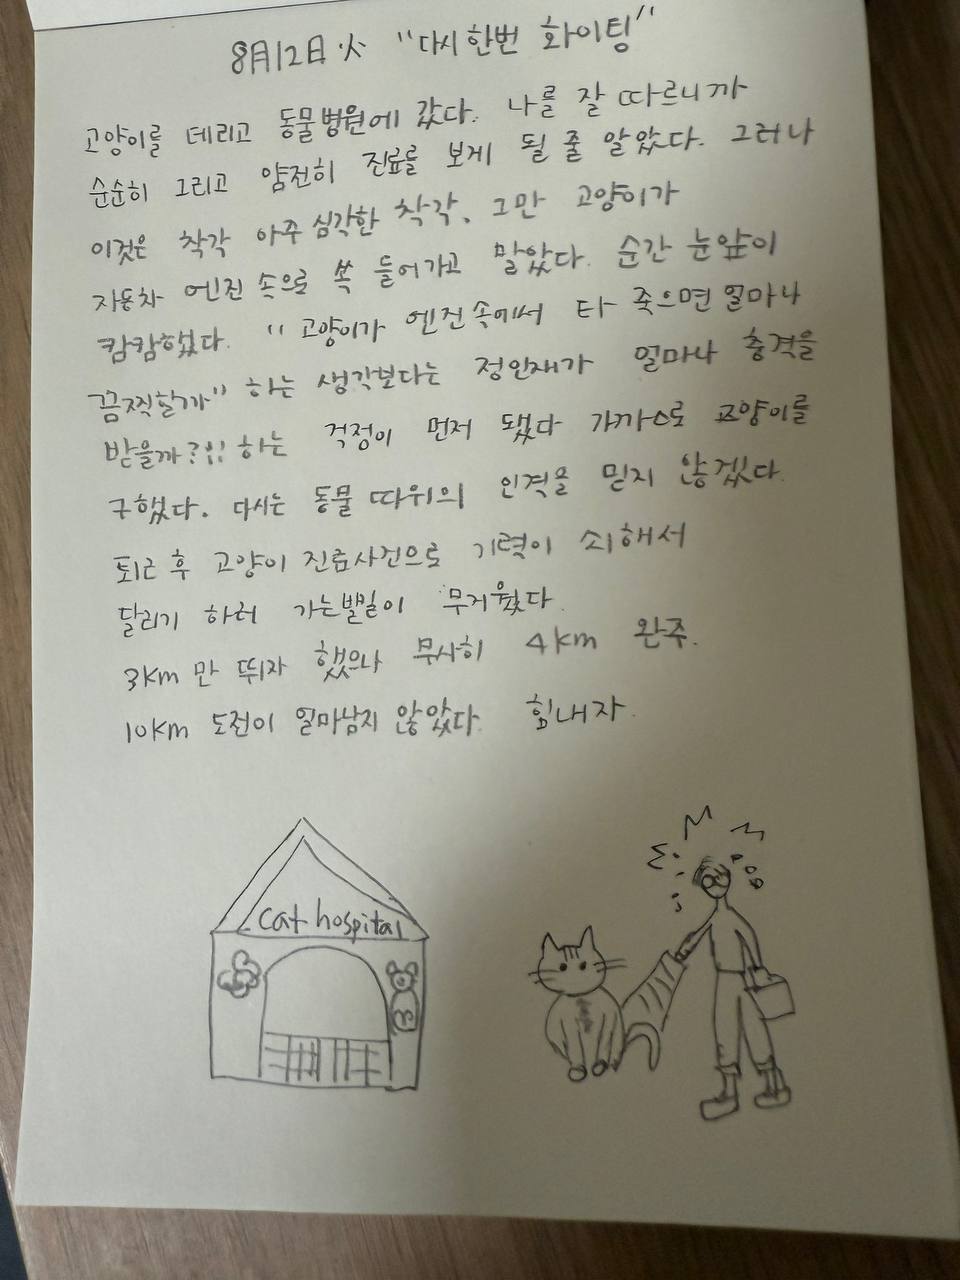 8月12日 火 "다시 한번 화이팅"
고양이를 데리고 동물병원에 갔다. 나를 잘 따르니까
순순히 그리고 얌전히 진료를 보게 될 줄 알았다. 그러나
이것은 착각 아주 심각한 착각. 그만 고양이가
자동차 엔진 속으로 쏙 들어가고 말았다. 순간 눈앞이
캄캄했다. "고양이가 엔진속에서 타 죽으면 얼마나
끔찍할까" 하는 생각보다는 정인재가 얼마나 충격을
받을까?!! 하는 걱정이 먼저 됐다 가까스로 고양이를
구했다. 다시는 동물 따위의 인격을 믿지 않겠다.
퇴근 후 고양이 진료사건으로 기력이 쇠해서
달리기 하러 가는발길이 무거웠다.
3km 만 뛰자 했으나 무사히 4km 완주.
10km 도전이 얼마남지 않았다. 힘내자.
cat hospital